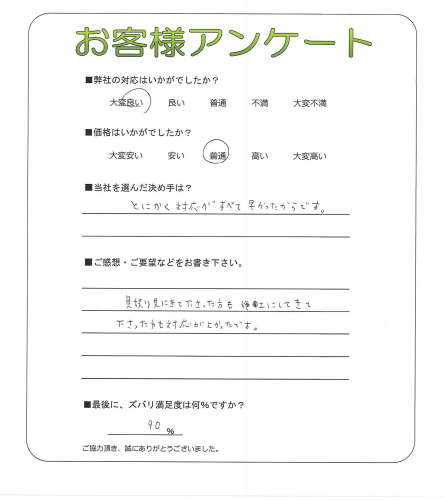 お客様アンケート
■弊社の対応はいかがでしたか?
大変良い 良い 普通 不満 大変不満
■価格はいかがでしたか?
大変安い 安い 普通 高い 大変高い
■当社を選んだ決め手は?
とにかく対応がすべて早かったからです。
■ご感想・ご要望などをお書き下さい。
見積り見にきて下さった方も 後
にしてきて
下さった方も対応が良かったです。
■最後に、ズバリ満足度は何%ですか?
90 %
ご協力頂き、誠にありがとうございました。